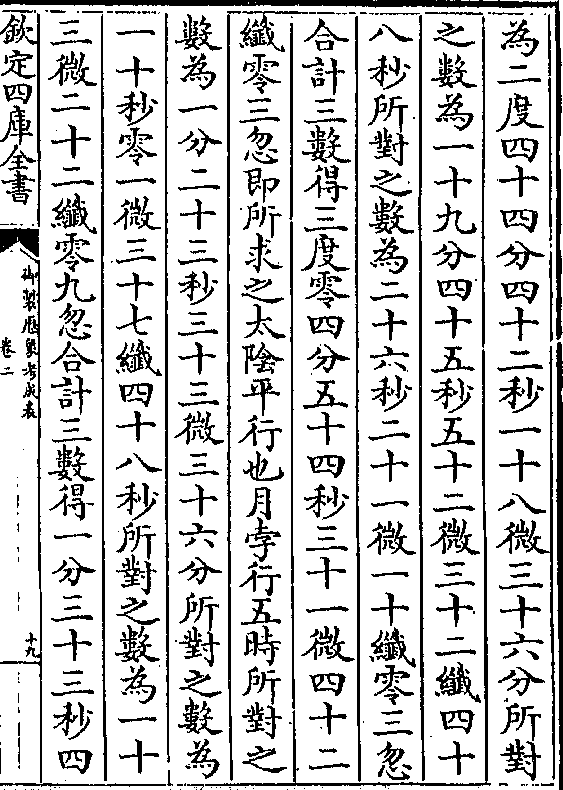 為二度四十四分四十二秒一十八微三十六分所對
之數為一十九分四十五秒五十二微三十二纖四十
八秒所對之數為二十六秒二十一微一十纖零三忽
合計三數得三度零四分五十四秒三十一微四十二
纖零三忽即所求之太陰平行也月孛行五時所對之
數為一分二十三秒三十三微三十六分所對之數為
一十秒零一微三十七纖四十八秒所對之數為一十
三微二十二纖零九忽合計三數得一分三十三秒四
欽定四庫全書
御製厯象考成表
卷二
十九